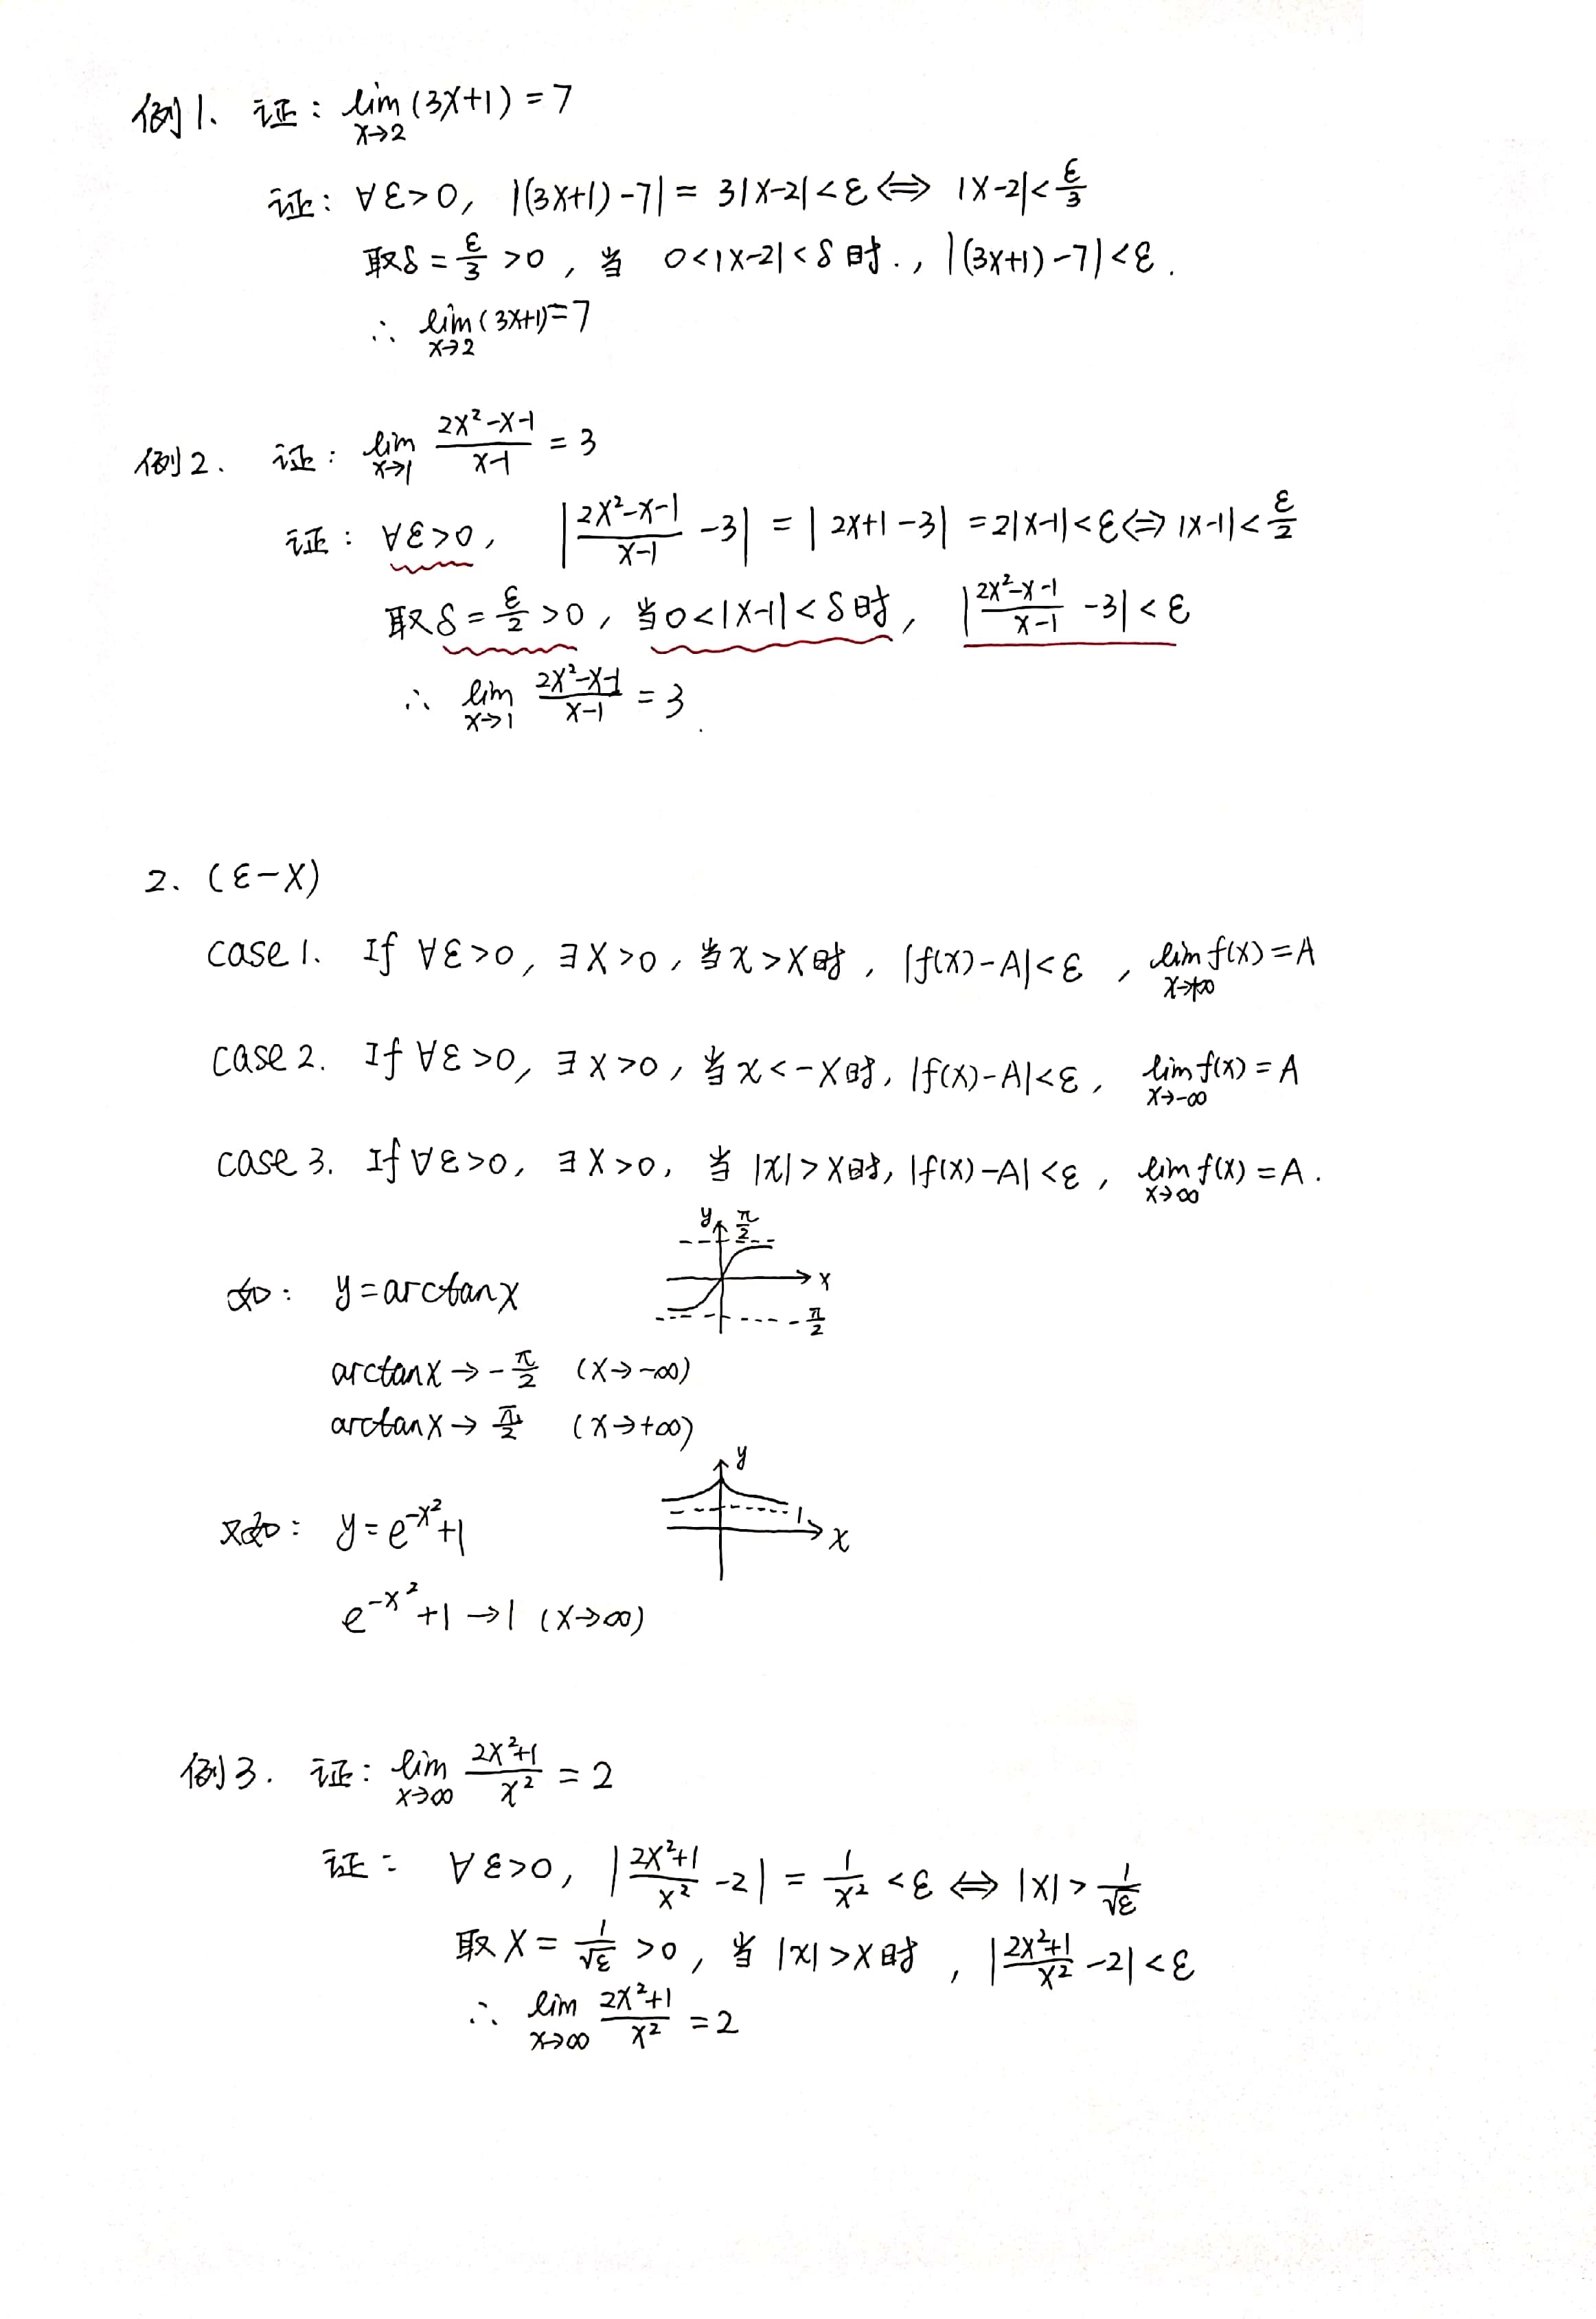 例1、证：lim_{x→2}(3x+1)=7
证：∀ε>0，|(3x+1)-7|=3|x-2|<ε⟺|x-2|<ε/3
取δ=ε/3>0，当 0<|x-2|<δ时.，|(3x+1)-7|<ε.
∴ lim_{x→2}(3x+1)=7
例2. 证：lim_{x→1} (2x²-x-1)/(x-1)=3
证：∀ε>0，|(2x²-x-1)/(x-1)-3|=|2x+1-3|=2|x-1|<ε⟺|x-1|<ε/2
取δ=ε/2>0，当0<|x-1|<δ时，|(2x²-x-1)/(x-1)-3|<ε
∴ lim_{x→1} (2x²-x-1)/(x-1)=3.
2、(ε-X)
case 1. If ∀ε>0，∃X>0，当x>X时，|f(x)-A|<ε，lim_{x→+∞}f(x)=A
case 2. If ∀ε>0，∃X>0，当x<-X时，|f(x)-A|<ε，lim_{x→-∞}f(x)=A
case 3. If ∀ε>0，∃X>0，当|x|>X时，|f(x)-A|<ε，lim_{x→∞}f(x)=A.
y π/2
如：y=arctanx
x
-π/2
arctanx→-π/2 (x→-∞)
arctanx→π/2 (x→+∞)
y
又如：y=e^{-x²}+1
1
x
e^{-x²}+1→1 (x→∞)
例3. 证：lim_{x→∞} (2x²+1)/x²=2
证：∀ε>0，|(2x²+1)/x²-2|=1/x²<ε⟺|x|>1/√ε
取X=1/√ε>0，当|x|>X时，|(2x²+1)/x²-2|<ε
∴ lim_{x→∞} (2x²+1)/x²=2